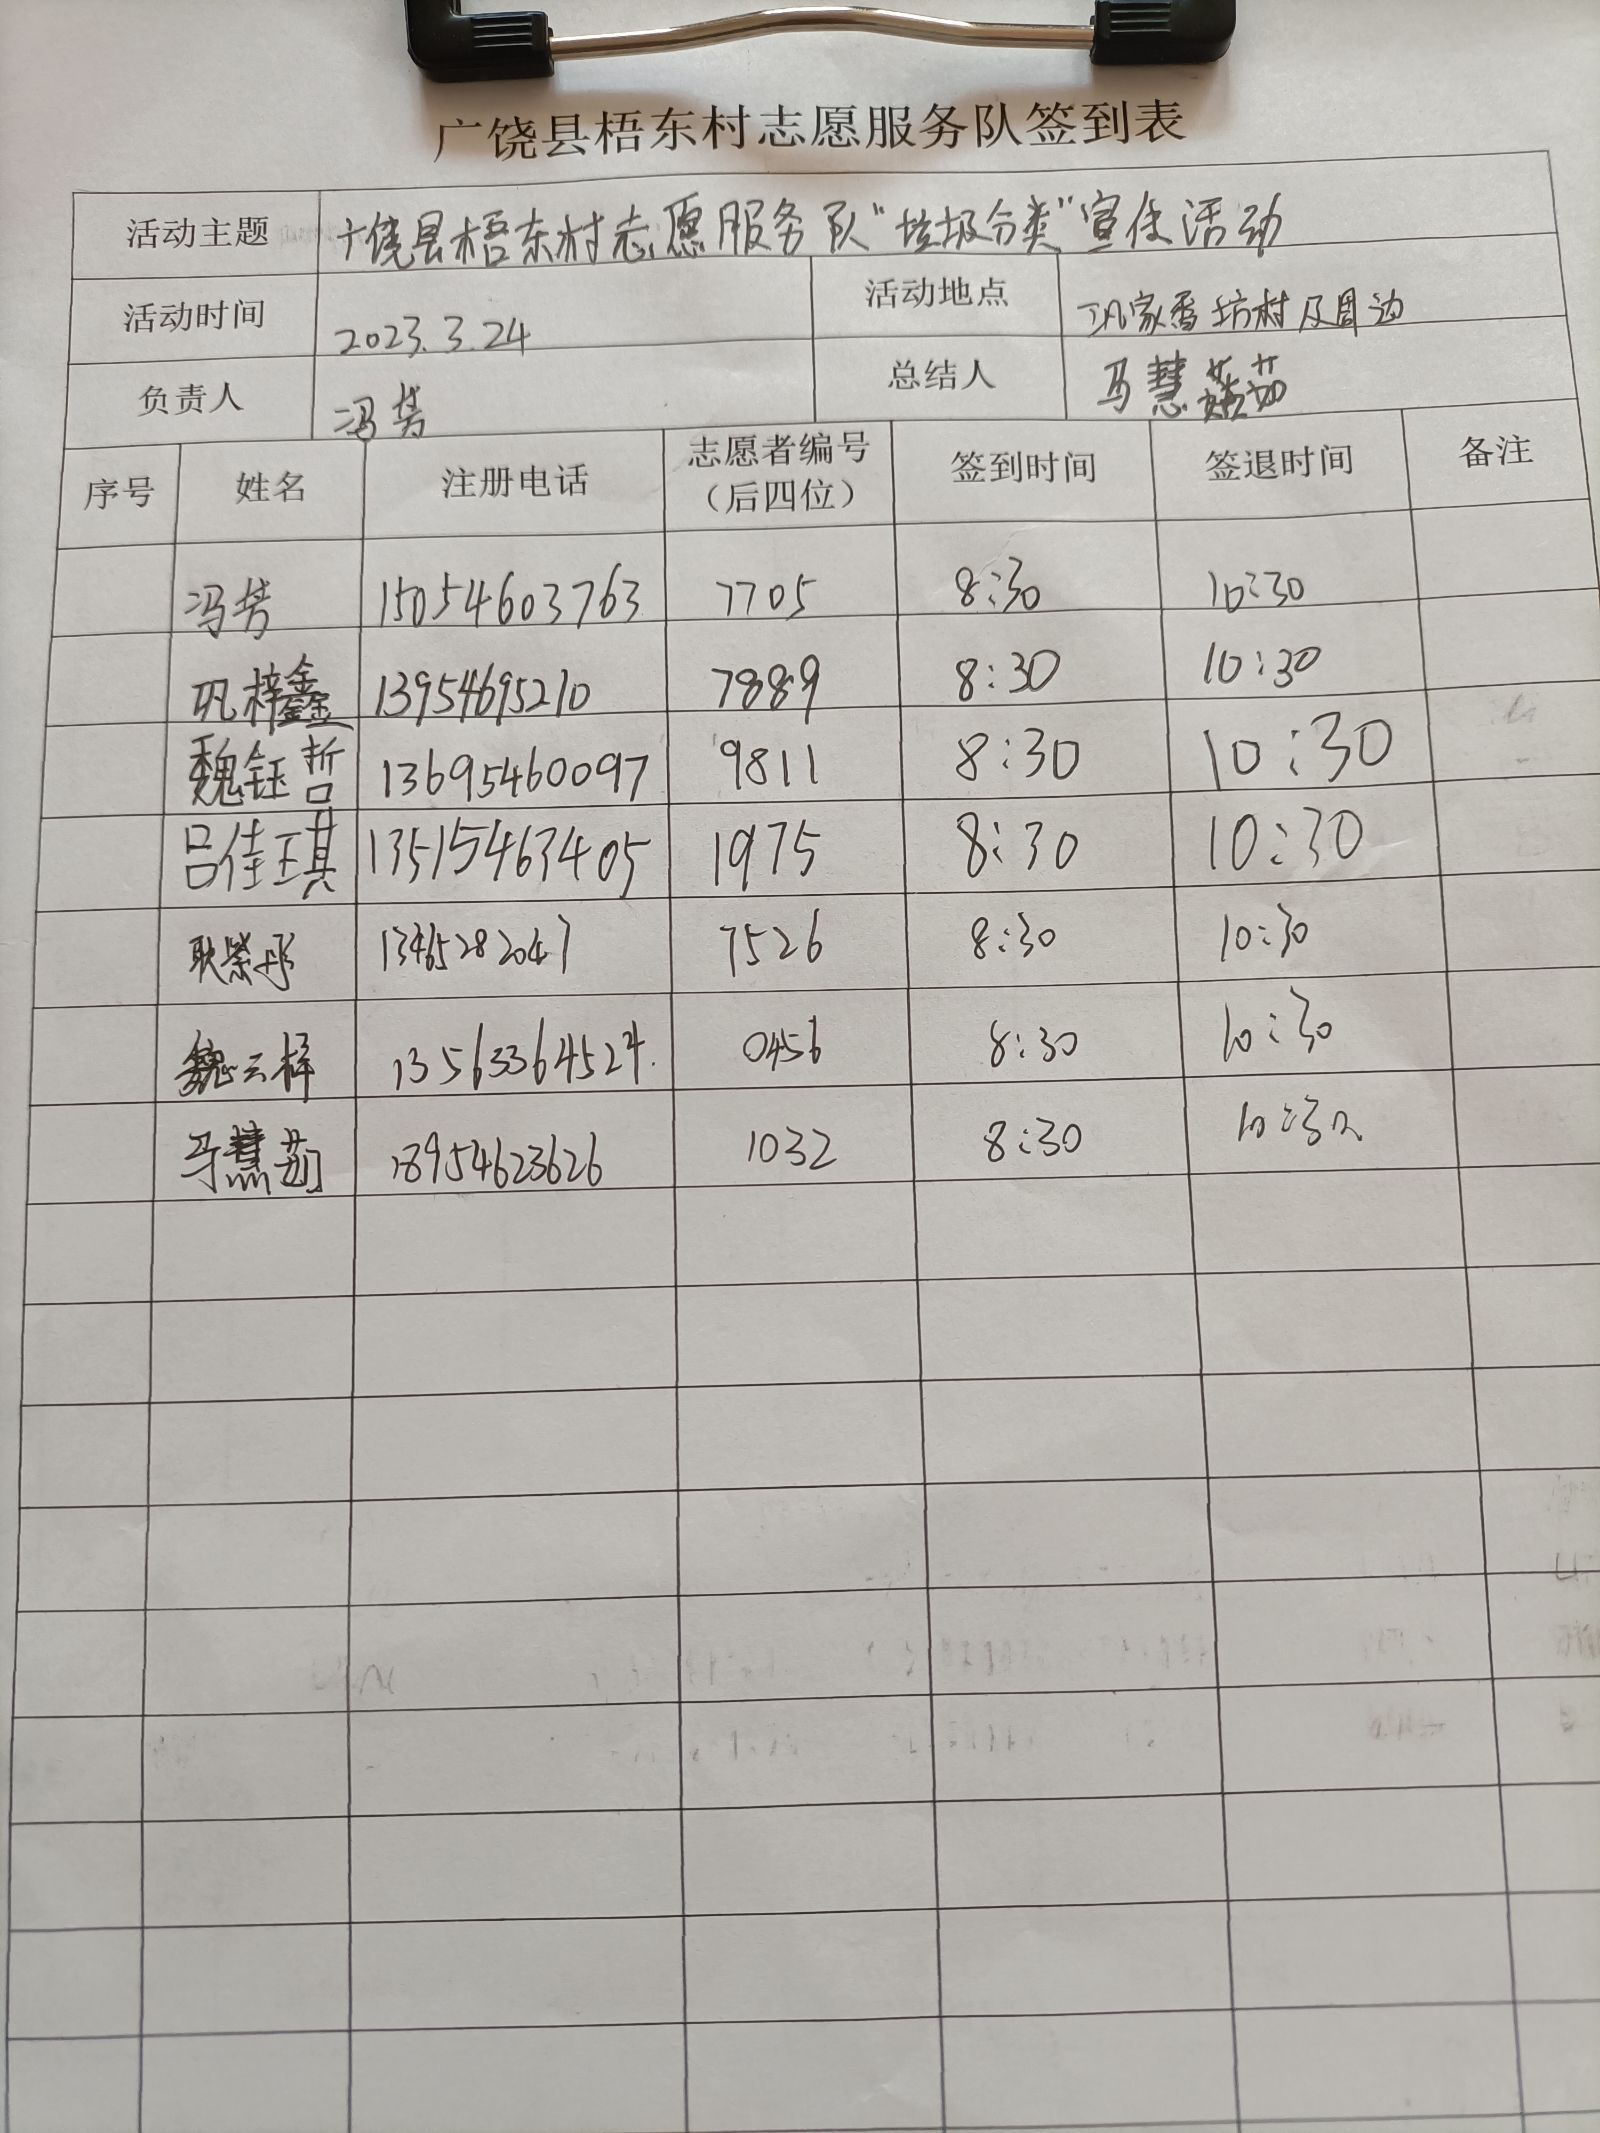 广饶县梧东村志愿服务队签到表
活动主题 广饶县梧东村志愿服务队“垃圾分类”宣传活动
活动时间 2023.3.24 活动地点 巩家香坊村及周边
负责人 冯芳 总结人 马慧茹
序号 姓名 注册电话 志愿者编号（后四位） 签到时间 签退时间 备注
冯芳 15054603763 7705 8:30 10:30
巩梓鑫 13954695210 7889 8:30 10:30
魏钰哲 13695460097 9811 8:30 10:30
吕佳琪 13515463405 1975 8:30 10:30
耿荣彤 13465282047 7526 8:30 10:30
魏云梓 13563364524 0456 8:30 10:30
马慧茹 18954623626 1032 8:30 10:30